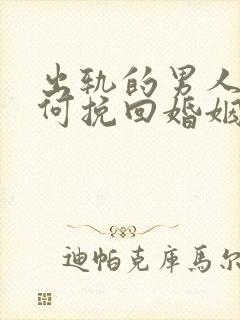 出轨的男人
何挽回婚姻
迪帕克库馬尔